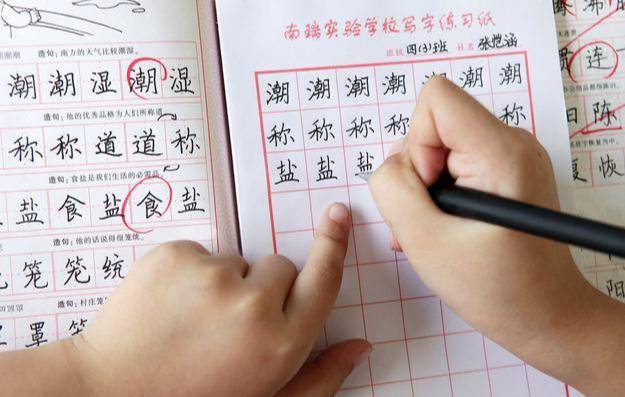 造句：南方的天气比较潮湿。
潮 潮 湿 潮 湿
造句：他的优秀品格为人们所称道
称 称 道 道 称
造句：食盐是我们生活的必需品
盐 食 盐 食 盐
造句：他的话说得很笼统。
笼 笼 统
造句：村庄笼
罩 罩
南瑞实验学校写字练习纸
班级 四(3)班 姓名 张恺涵
潮 潮 潮 潮 潮 潮
称 称 称 称 称
盐 盐 盐
沸
连
陈
复 恢